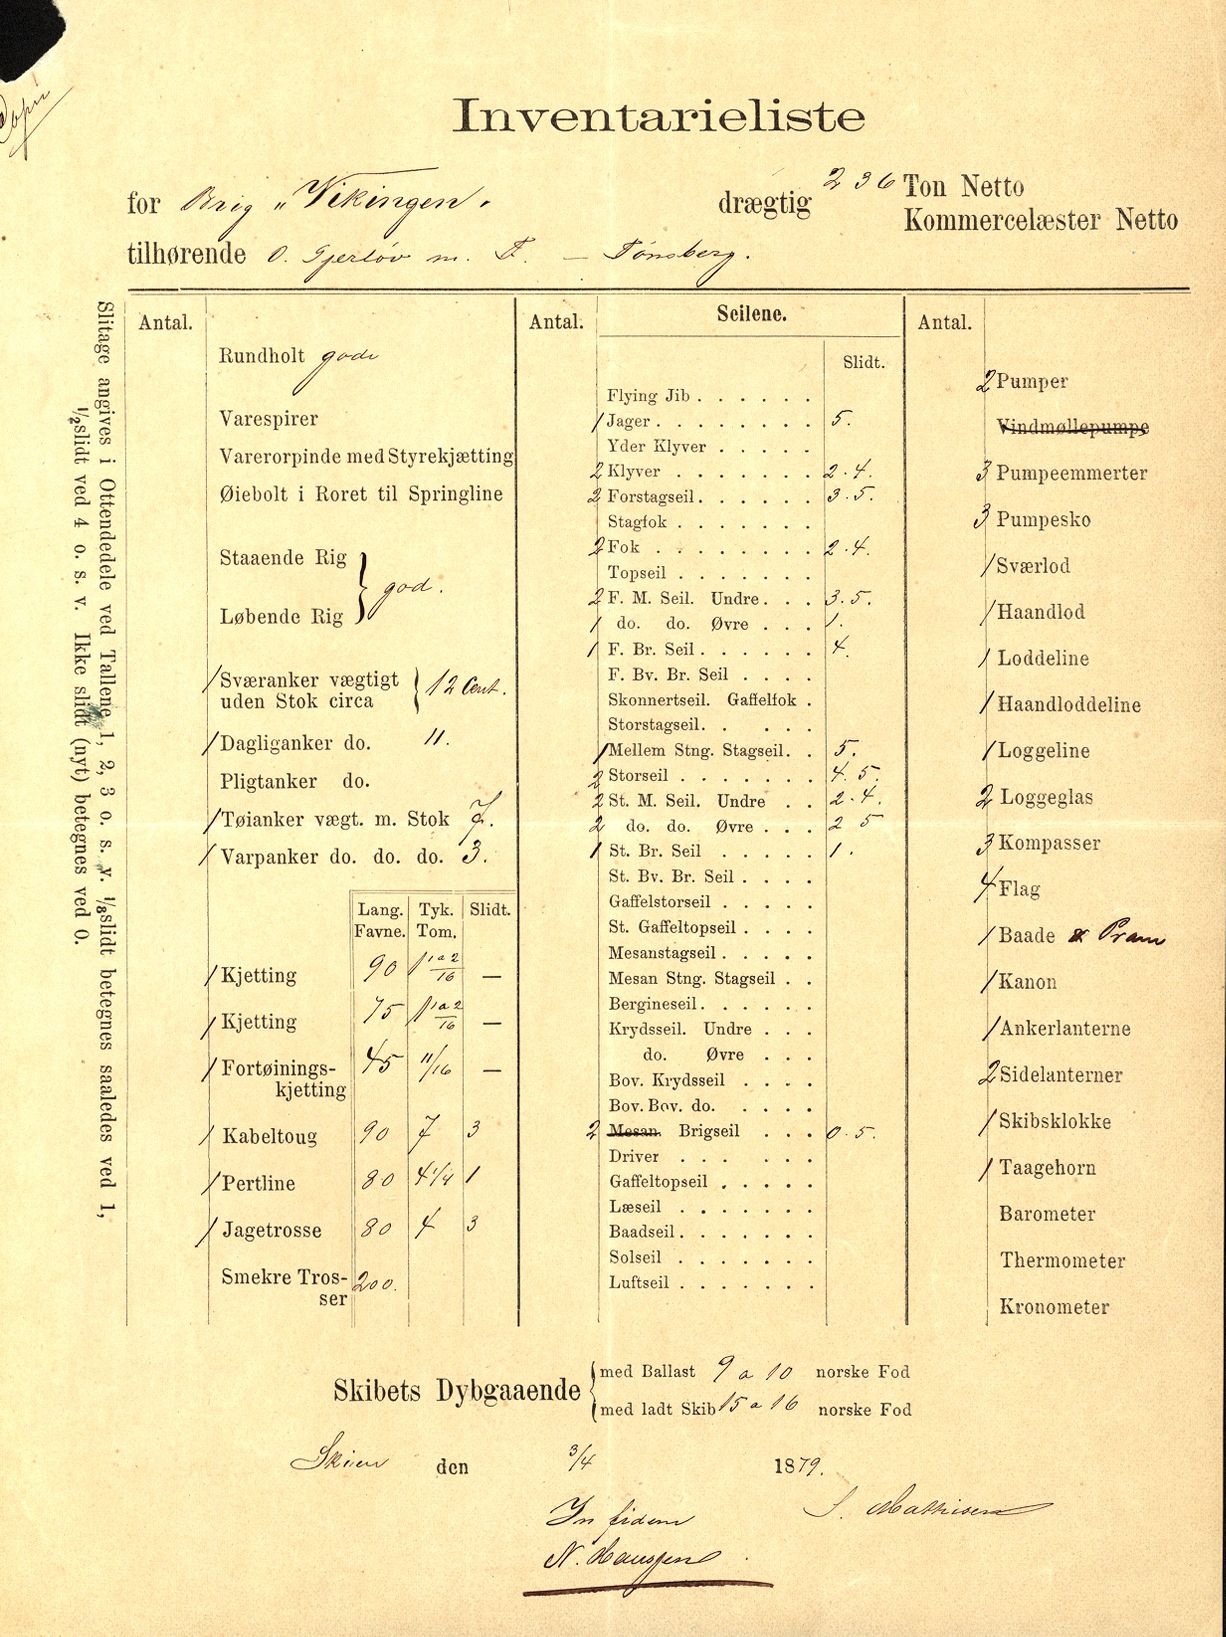 Copi
Inventarieliste
for Brig „Vikingen" drægtig 236 Ton Netto
Kommercelæster Netto
tilhørende O. Gjerløv m. F. — Tønsberg.
Slitage angives i Ottendedele ved Tallene 1, 2, 3 o. s. v. ⅛slidt betegnes saaledes ved 1,
½slidt ved 4 o. s. v. Ikke slidt (nyt) betegnes ved 0.
Antal.
Rundholt gode
Varespirer
Varerorpinde med Styrekjætting
Øiebolt i Roret til Springline
Staaende Rig
Løbende Rig } god.
1 Sværanker vægtigt
uden Stok circa { 12 Cent.
1 Dagliganker do. 11.
Pligtanker do.
1 Tøianker vægt. m. Stok 7.
1 Varpanker do. do. do. 3.
Lang. Tyk. Slidt.
Favne. Tom.
1 Kjetting 90 1 1 a 2/16 —
1 Kjetting 75 1 1 a 2/16 —
1 Fortøinings-
kjetting 45 11/16 —
1 Kabeltoug 90 7 3
1 Pertline 80 4 1/4 1
1 Jagetrosse 80 4 3
Smekre Tros-
ser 200.
Antal. Seilene.
Slidt.
Flying Jib . . . . . .
1 Jager . . . . . . . . 5.
Yder Klyver . . . . .
2 Klyver . . . . . . . 2.4.
2 Forstagseil . . . . . . 3.5.
Stagfok . . . . . . .
2 Fok . . . . . . . . 2.4.
Topseil . . . . . . .
2 F. M. Seil. Undre . . . 3.5.
1 do. do. Øvre . . . 1.
1 F. Br. Seil . . . . . . 4.
F. Bv. Br. Seil . . . .
Skonnertseil. Gaffelfok .
Storstagseil. . . . .
1 Mellem Stng. Stagseil. . 5.
2 Storseil . . . . . . . 4.5.
2 St. M. Seil. Undre . . 2.4.
2 do. do. Øvre . . . 2 5
1 St. Br. Seil . . . . . 1.
St. Bv. Br. Seil . . . .
Gaffelstorseil . . . . .
St. Gaffeltopseil . . . .
Mesanstagseil . . . . .
Mesan Stng. Stagseil . .
Bergineseil . . . . . .
Krydsseil. Undre . . .
do. Øvre . . .
Bov. Krydsseil . . . .
Bov. Bov. do. . . . .
2 Mesan. Brigseil . . . 0.5.
Driver . . . . . .
Gaffeltopseil . . . . .
Læseil . . . . . . .
Baadseil . . . . . . .
Solseil . . . . . . .
Luftseil . . . . . . .
Antal.
2 Pumper
Vindmøllepumpe
3 Pumpeemmerter
3 Pumpesko
1 Sværlod
1 Haandlod
1 Loddeline
1 Haandloddeline
1 Loggeline
2 Loggeglas
3 Kompasser
4 Flag
1 Baade & Pram
1 Kanon
1 Ankerlanterne
2 Sidelanterner
1 Skibsklokke
1 Taagehorn
Barometer
Thermometer
Kronometer
Skibets Dybgaaende { med Ballast 9 a 10 norske Fod
med ladt Skib 15 a 16 norske Fod
Skien den 3/4 1879.
S. Mathisen
In fidem
N. Haussen